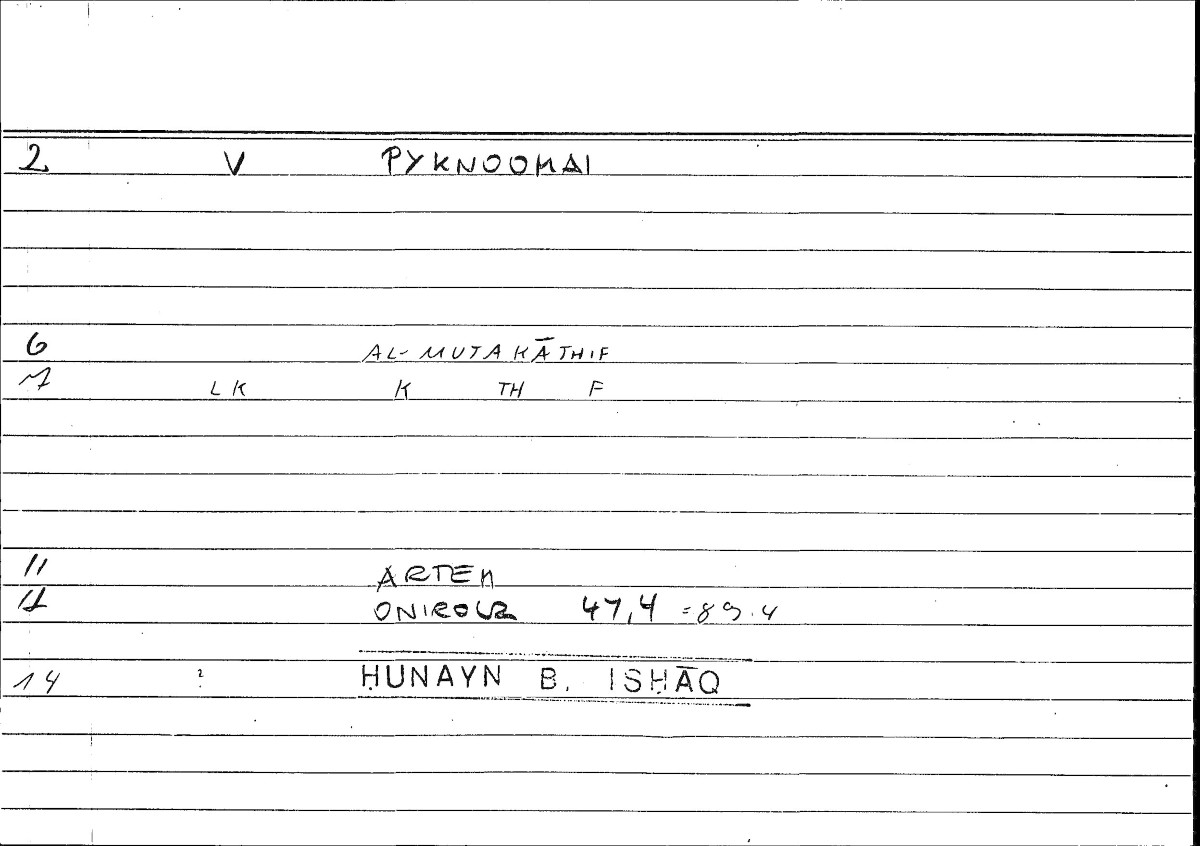 2 V PYKNOOMAI
6 AL-MUTAKĀTHIF
7 LK K TH F
11 ARTEM
12 ONIROCR 47,4 = 89.4
14 ? ḤUNAYN B. ISḤĀQ